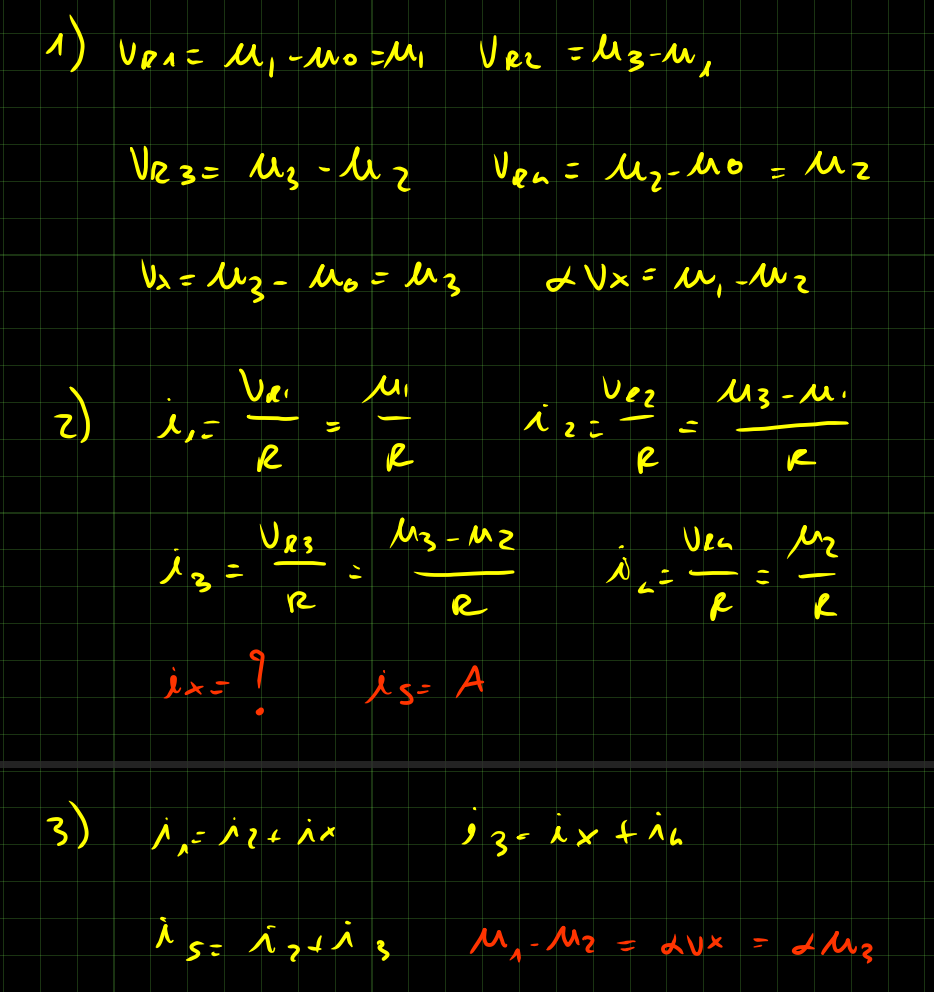 1) VR1 = μ1 - μ0 = μ1 VR2 = μ3 - μ1
VR3 = μ3 - μ2 VR4 = μ2 - μ0 = μ2
Vx = μ3 - μ0 = μ3 αVx = μ1 - μ2
2) i1 = VR1/R = μ1/R i2 = VR2/R = (μ3 - μ1)/R
i3 = VR3/R = (μ3 - μ2)/R i4 = VR4/R = μ2/R
ix = ? is = A
3) i1 = i2 + ix i3 = ix + i4
is = i2 + i3 μ1 - μ2 = αVx = αμ3